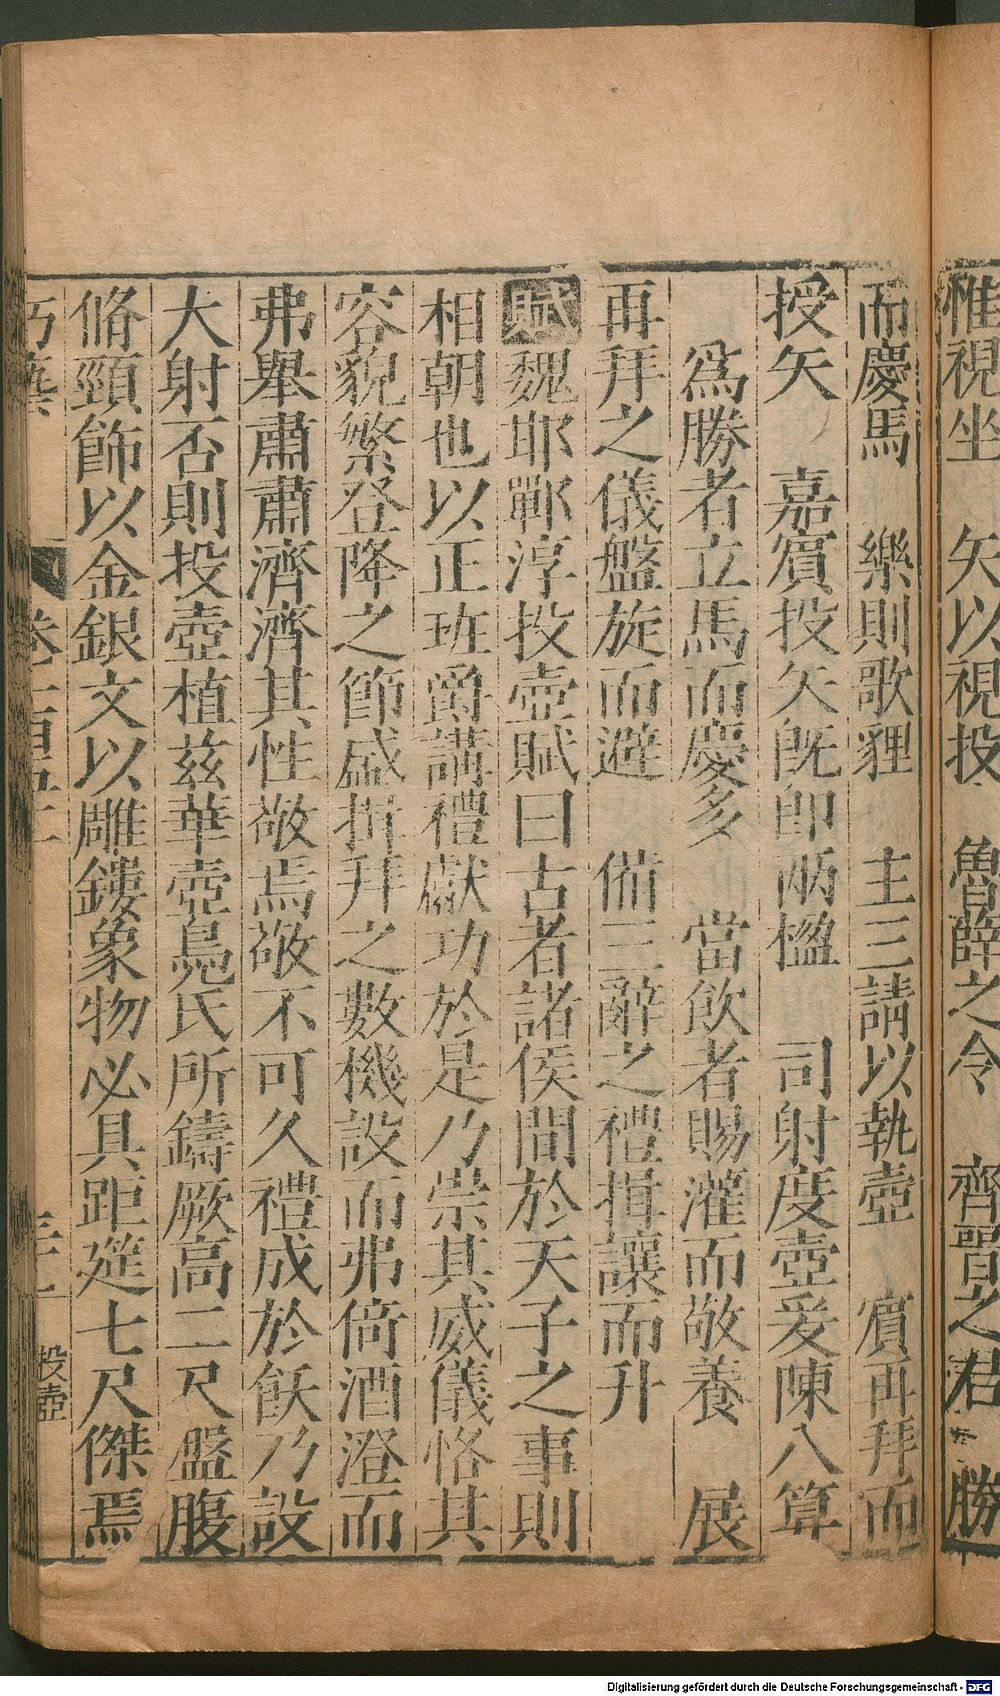 惟視坐　矢以視投　魯薛之令　齊晋之君　勝
而慶馬　樂則歌貍　主三請以執壺　賓再拜而
授矢　嘉賓投矢旣卽兩楹　司射度壺爰陳八算
爲勝者立馬而慶多　當飮者賜灌而敬養　展
再拜之儀盤旋而避　備三辭之禮揖讓而升
賦魏耶鄲淳投壺賦曰古者諸侯間於天子之事則
相朝也以正班爵講禮獻功於是乃崇其威儀恪其
容貌繁登降之節盛揖拜之數機設而弗倚酒澄而
弗舉肅肅濟濟其性敬焉敬不可久禮成於飫乃設
大射否則投壺植兹華壺鳧氏所鑄厥高二尺盤腹
脩頸飾以金銀文以雕鏤象物必具距筵七尺傑焉
巧藝　卷二百四十　三十一　投壺
Digitalisierung gefördert durch die Deutsche Forschungsgemeinschaft - DFG